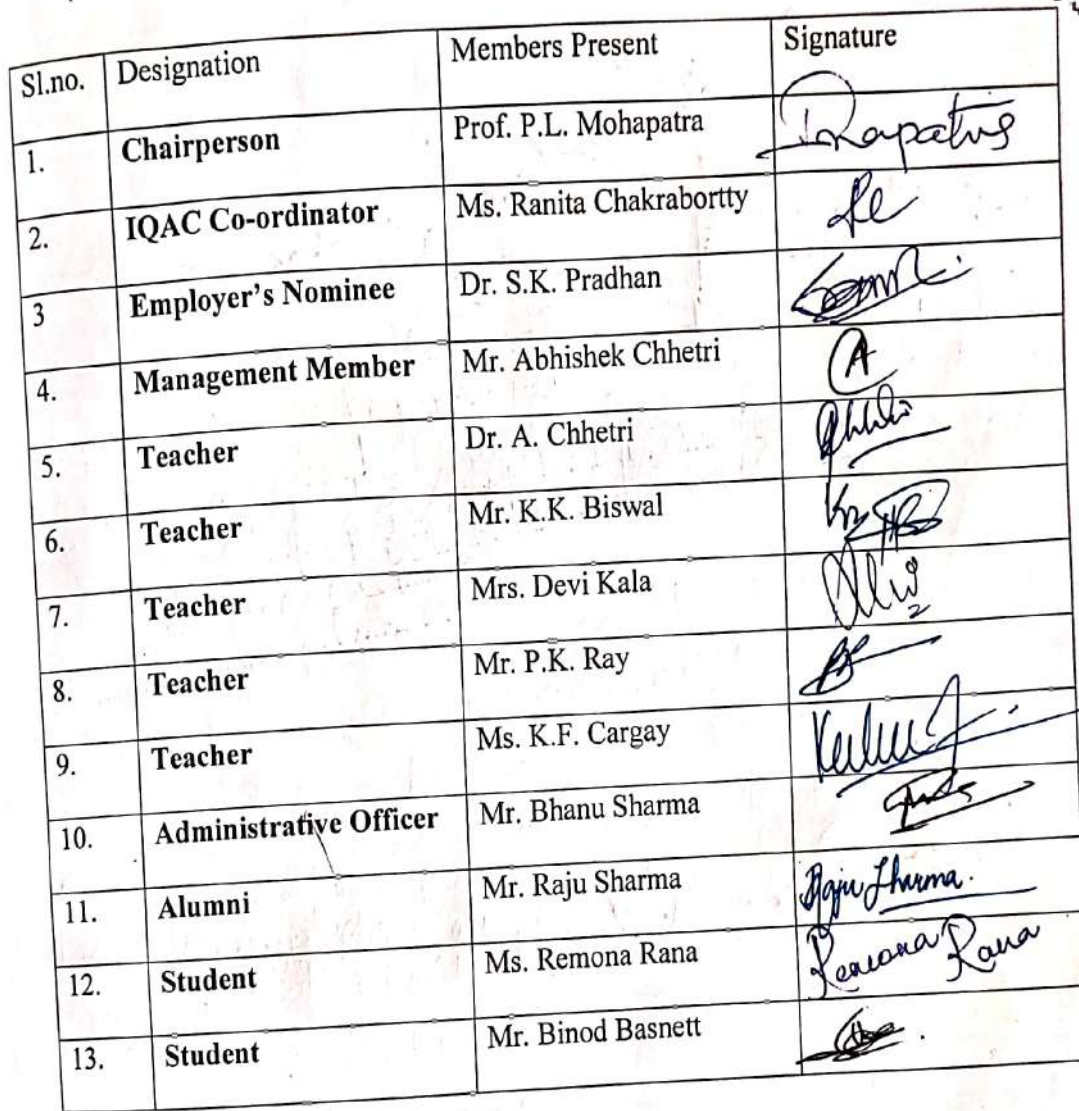 Sl.no. Designation Members Present Signature
1. Chairperson Prof. P.L. Mohapatra
2. IQAC Co-ordinator Ms. Ranita Chakrabortty
3 Employer's Nominee Dr. S.K. Pradhan
4. Management Member Mr. Abhishek Chhetri A
5. Teacher Dr. A. Chhetri
6. Teacher Mr. K.K. Biswal
7. Teacher Mrs. Devi Kala
8. Teacher Mr. P.K. Ray
9. Teacher Ms. K.F. Cargay
10. Administrative Officer Mr. Bhanu Sharma
11. Alumni Mr. Raju Sharma Raju Sharma.
12. Student Ms. Remona Rana Remona Rana
13. Student Mr. Binod Basnett